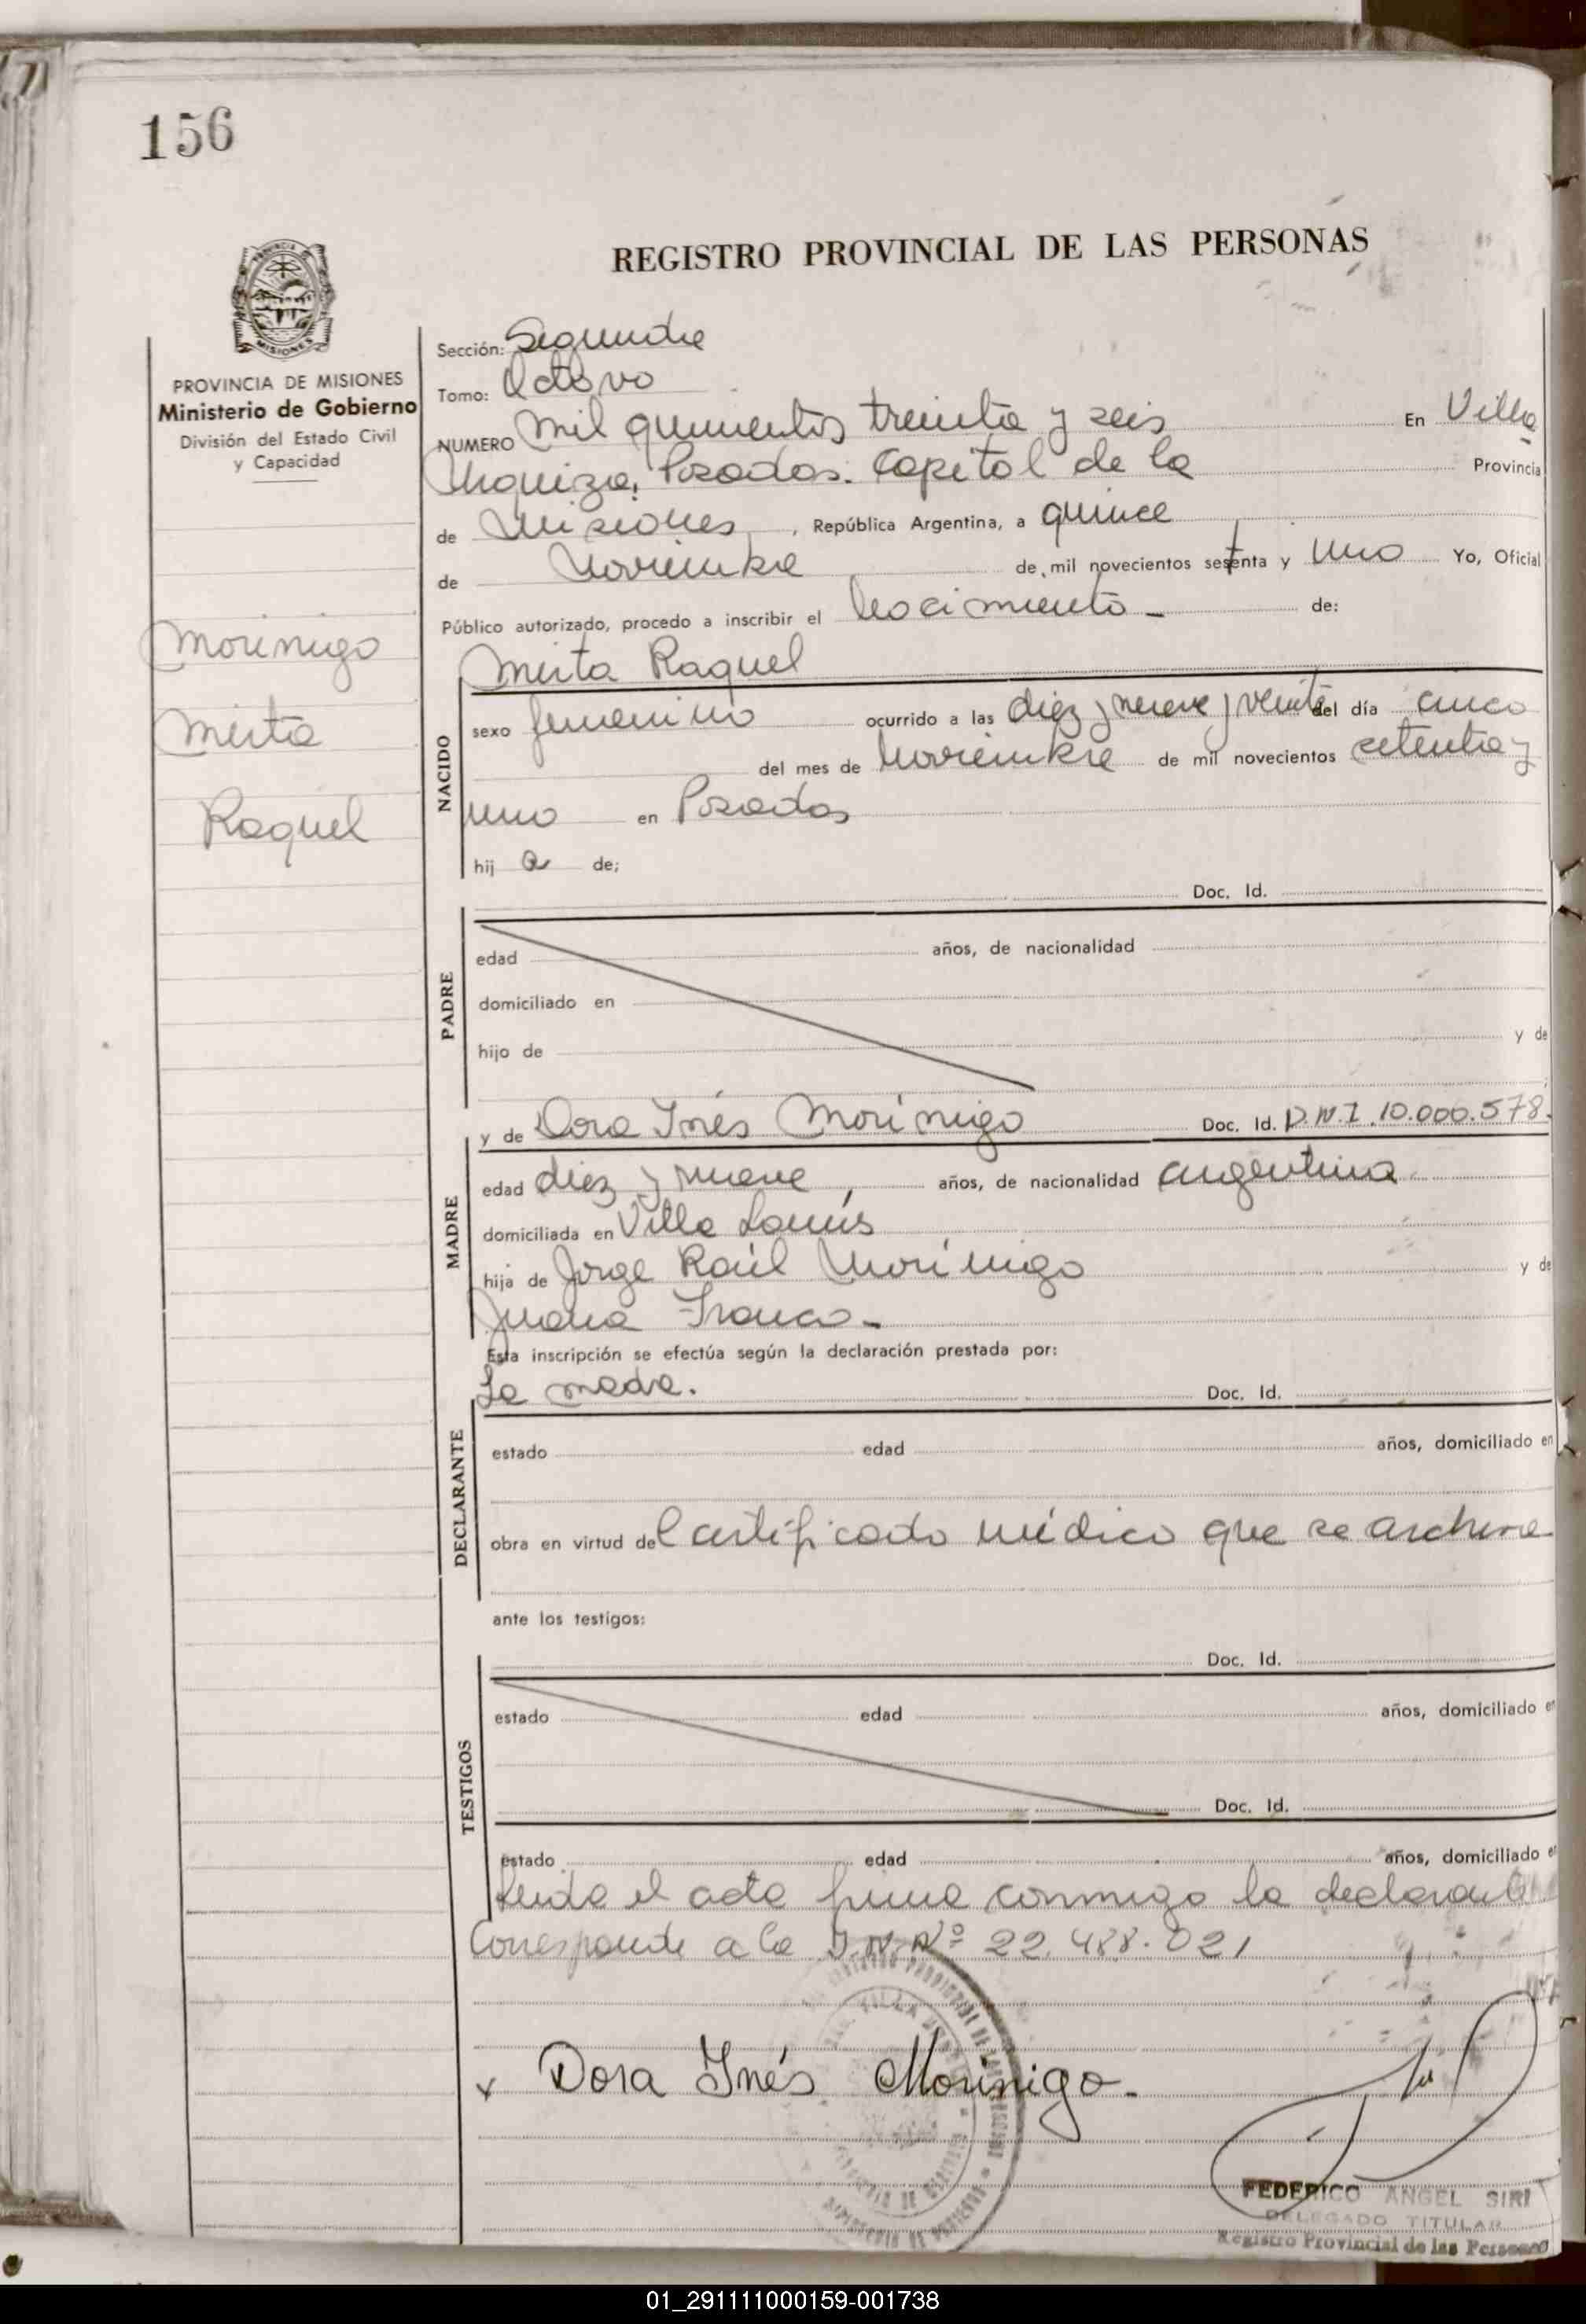 156
REGISTRO PROVINCIAL DE LAS PERSONAS
PROVINCIA DE MISIONES
Ministerio de Gobierno
División del Estado Civil
y Capacidad
Morinigo
Mirta
Raquel
Sección: Segunda
Tomo: Octavo
NUMERO Mil quinientos treinta y seis En Villa
Urquiza, Posadas. Capital de la Provincia
de Misiones, República Argentina, a quince
de Noviembre de mil novecientos setenta y uno Yo, Oficial
Público autorizado, procedo a inscribir el Nacimiento - de:
Mirta Raquel
NACIDO
sexo femenino ocurrido a las diez y nueve y veinte del día cinco
del mes de Noviembre de mil novecientos setenta y
uno en Posadas
hij a de;
Doc. Id.
PADRE
edad años, de nacionalidad
domiciliado en
hijo de y de
y de Dora Inés Morínigo Doc. Id. D.N.I. 10.000.578.
MADRE
edad diez y nueve, años, de nacionalidad argentina
domiciliada en Villa Lanús
hija de Jorge Raúl Morínigo y de
Juana Franco -
Esta inscripción se efectúa según la declaración prestada por:
La madre. Doc. Id.
DECLARANTE
estado edad años, domiciliado en
obra en virtud del certificado médico que se archiva
ante los testigos:
Doc. Id.
TESTIGOS
estado edad años, domiciliado en
Doc. Id.
estado edad años, domiciliado en
Leida el acta firma conmigo la declarante
Corresponde a la I.N. Nº 22.488.021
x Dora Inés Morinigo.
FEDERICO ANGEL SIRI
DELEGADO TITULAR
Registro Provincial de las Personas
01_291111000159-001738